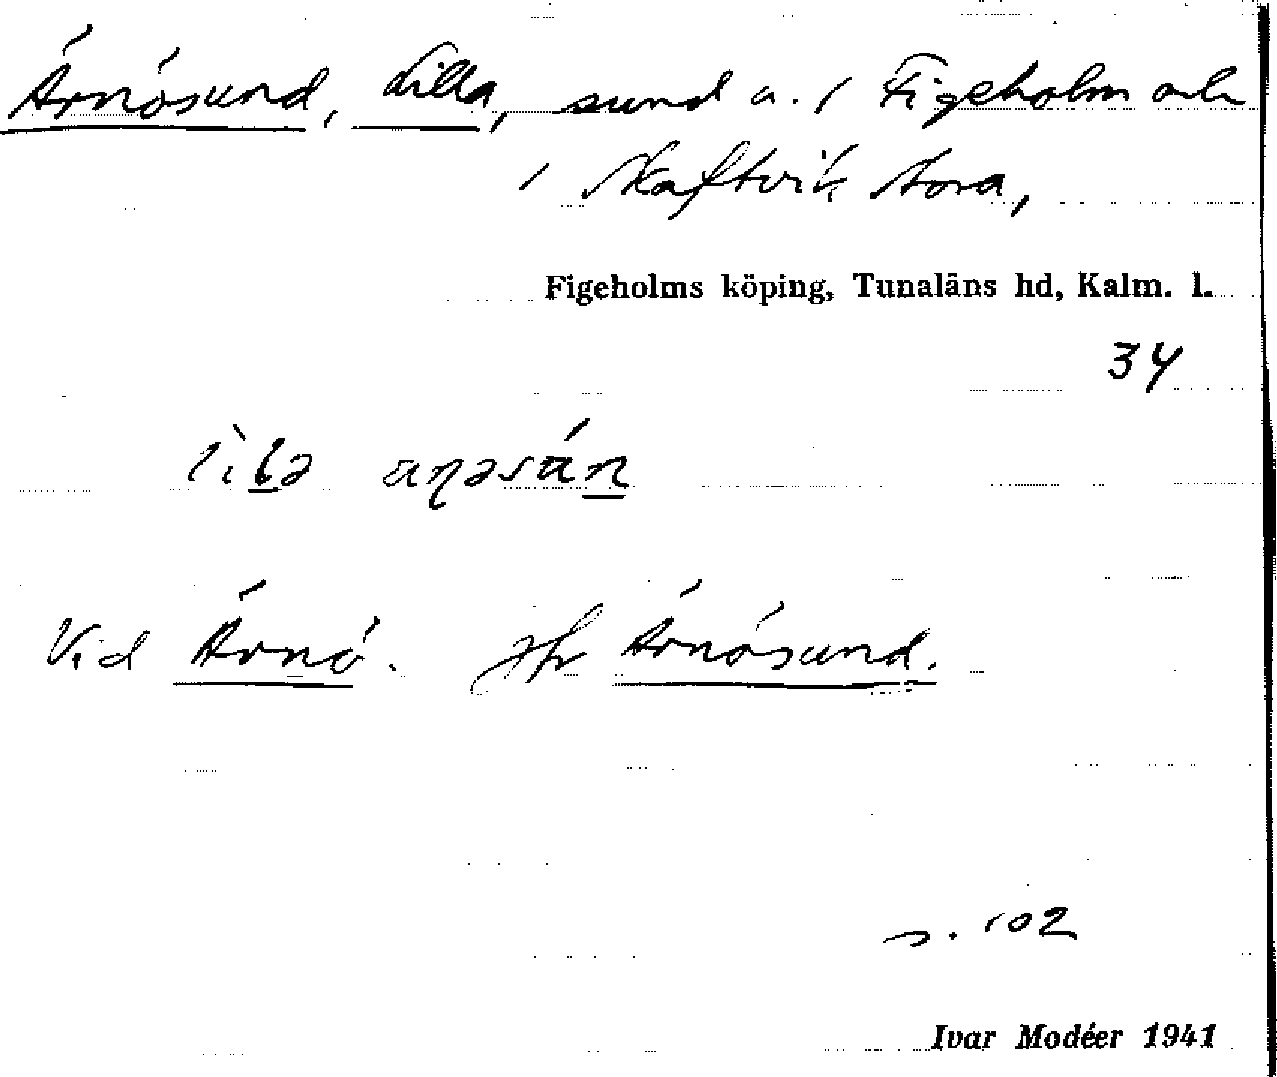 Ärnösund, Lilla, sund a. 1 Figeholm och
1 Skaftvik Stora,
Figeholms köping, Tunaläns hd, Kalm. l.
34
Vid Ärnö. Jfr Ärnösund.
s. 102
Ivar Modéer 1941